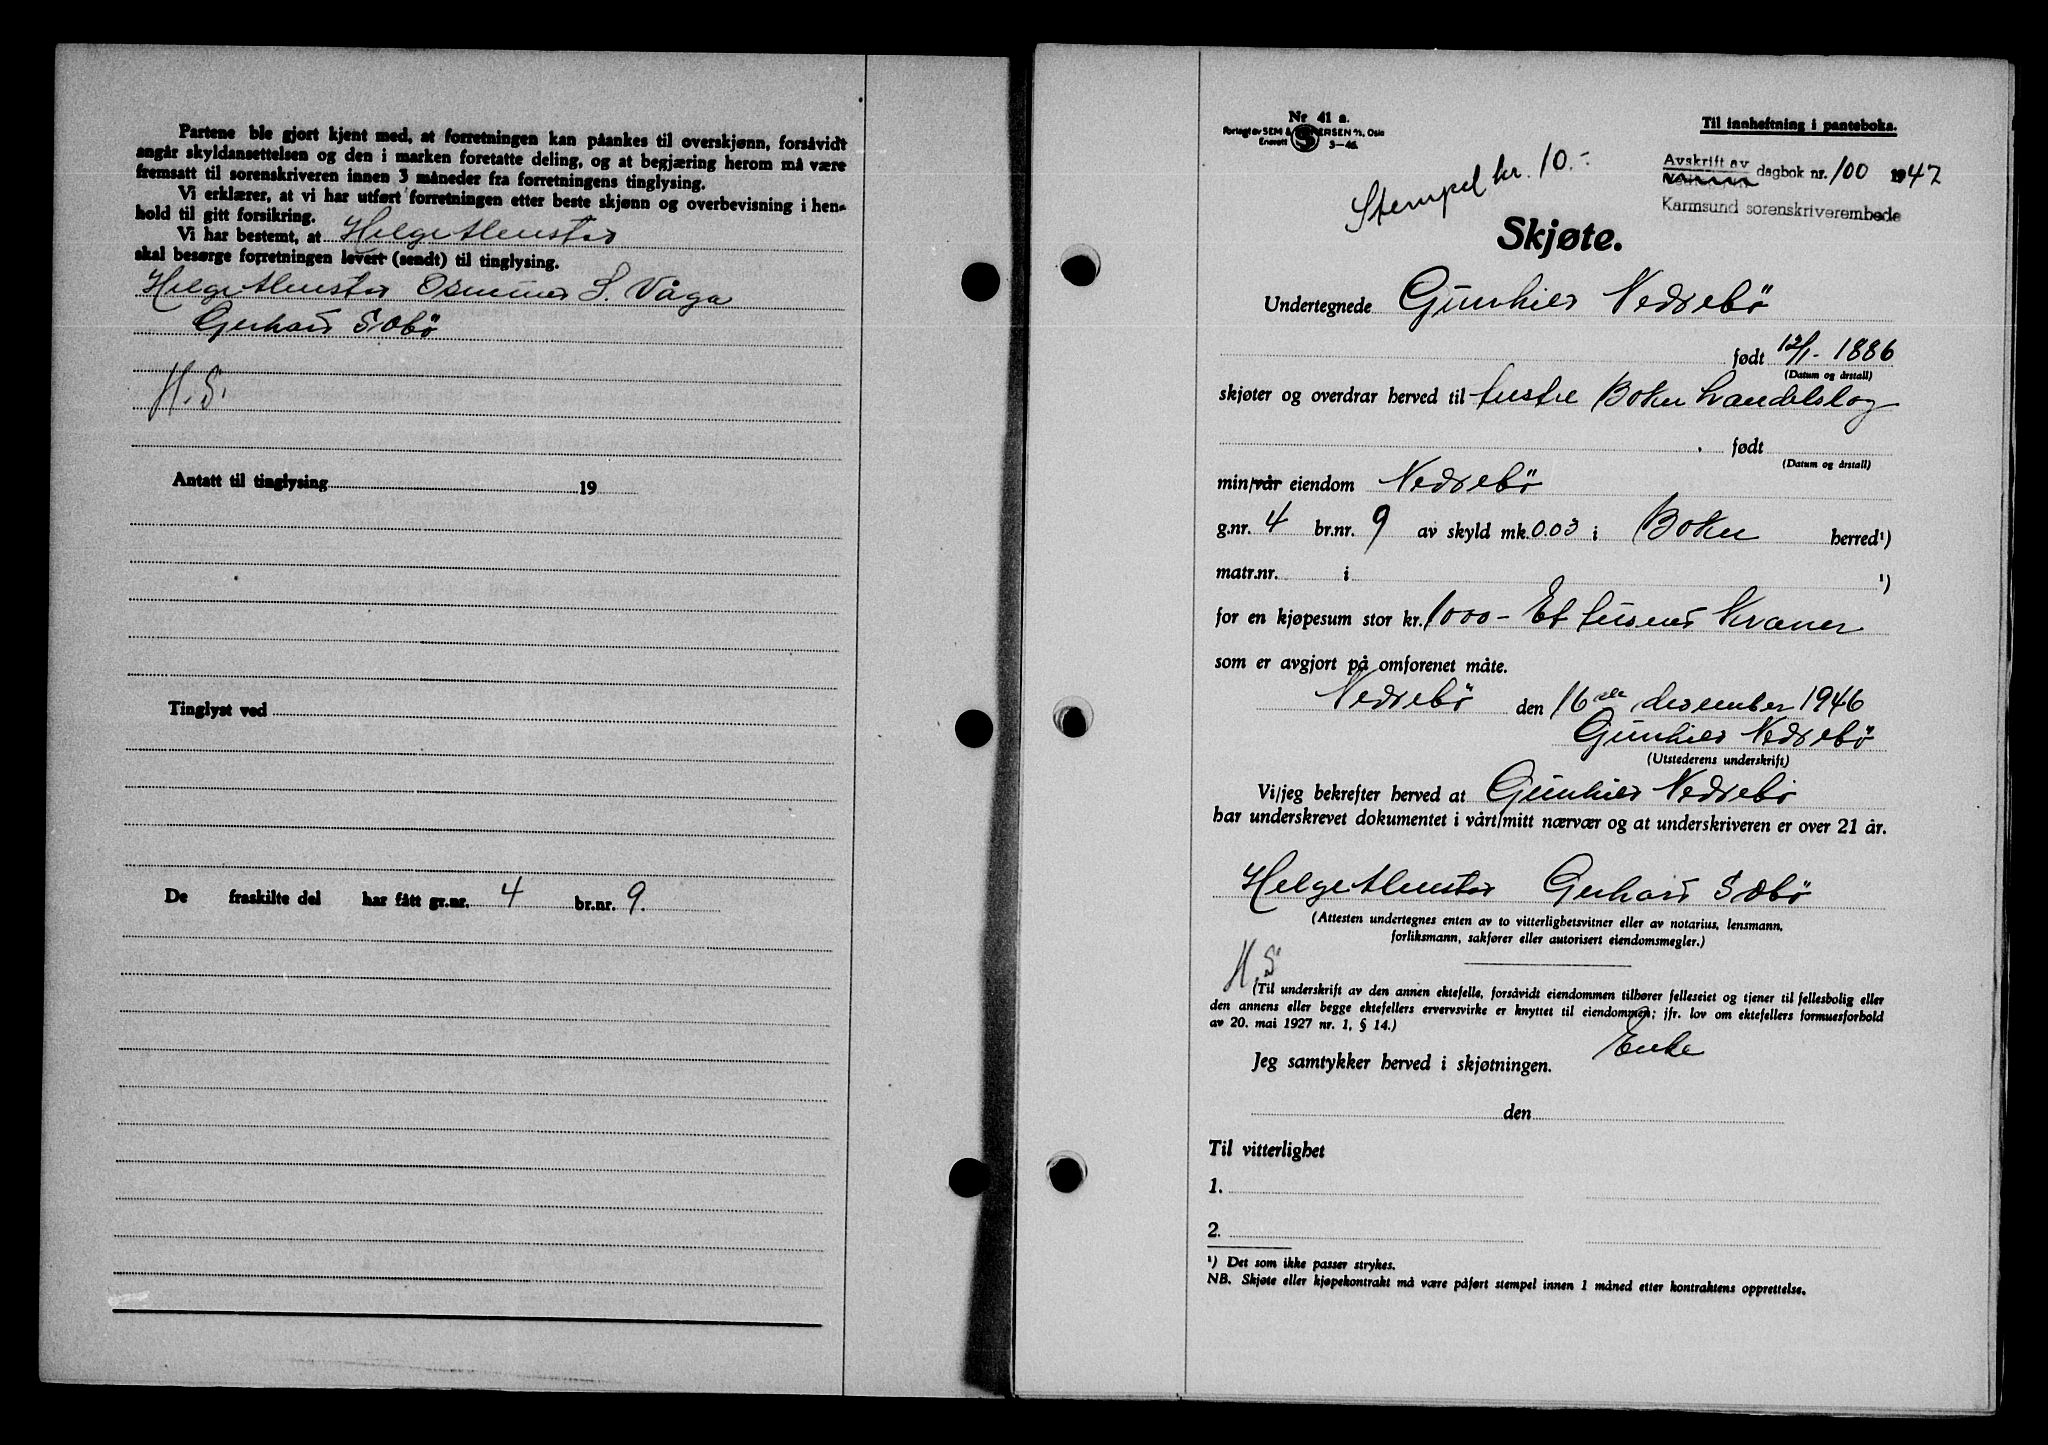 Partene ble gjort kjent med, at forretningen kan påankes til overskjønn, forsåvidt
angår skyldansettelsen og den i marken foretatte deling, og at begjæring herom må være
fremsatt til sorenskriveren innen 3 måneder fra forretningens tinglysing.
Vi erklærer, at vi har utført forretningen etter beste skjønn og overbevisning i hen-
hold til gitt forsikring.
Vi har bestemt, at Helge Alenstar
skal besørge forretningen levert (sendt) til tinglysing.
Helge Alenstar Osmund S. Våga
Gerhard Sæbö
H.S.
Antatt til tinglysing 19
Tinglyst ved
De fraskilte del har fått gr.nr. 4 br.nr. 9.
Nr 41 a.
Forlagt av SEM & STENERSEN A/S, Oslo
Enerett S 3-46.
Til innheftning i panteboka.
Stempel kr. 10.-
Avskrift av
dagbok nr. 100 1947
Karmsund sorenskriverembede
Skjøte.
Undertegnede Gunhild Nedrebö
født 12/1- 1886
(Datum og årstall)
skjøter og overdrar herved til Austre Bokn Handelslag
født
(Datum og årstall)
min/vår eiendom Nedrebö
g.nr. 4 br.nr. 9 av skyld mk. 0.03 i Bokn herred¹)
matr.nr. i ¹)
for en kjøpesum stor kr. 1000- Et tusend Kroner
som er avgjort på omforenet måte.
Nedrebö den 16de desember 1946
Gunhild Nedrebö
(Utstederens underskrift)
Vi/jeg bekrefter herved at Gunhild Nedrebö
har underskrevet dokumentet i vårt/mitt nærvær og at underskriveren er over 21 år.
Helge Alenstar Gerhard Sæbö
(Attesten undertegnes enten av to vitterlighetsvitner eller av notarius, lensmann,
forliksmann, sakfører eller autorisert eiendomsmegler.)
H.S.
(Til underskrift av den annen ektefelle, forsåvidt eiendommen tilhører felleseiet og tjener til fellesbolig eller
den annens eller begge ektefellers ervervsvirke er knyttet til eiendommen; jfr. lov om ektefellers formuesforhold
av 20. mai 1927 nr. 1, § 14.)
Jeg samtykker herved i skjøtningen. Enke
den
Til vitterlighet
1.
2.
¹) Det som ikke passer strykes.
NB. Skjøte eller kjøpekontrakt må være påført stempel innen 1 måned etter kontraktens opprettelse.